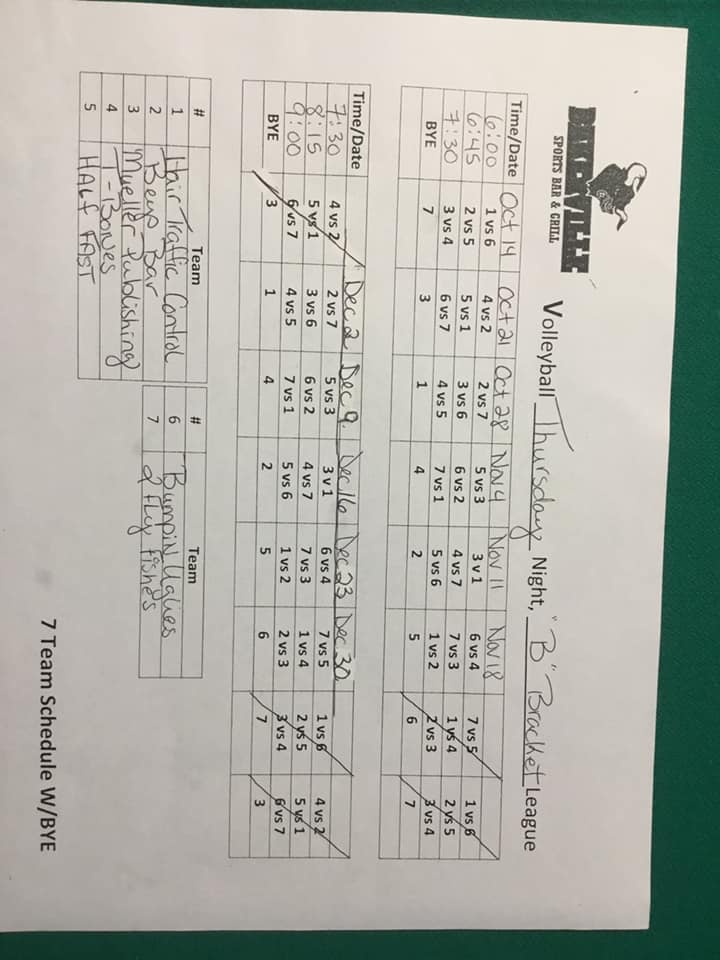 SPORTS BAR & GRILL
Volleyball Thursday Night, "B" Bracket League
Time/Date Oct 14 Oct 21 Oct 28 Nov 4 Nov 11 Nov 18
6:00 1 vs 6 4 vs 2 2 vs 7 5 vs 3 3 v 1 6 vs 4 7 vs 5 1 vs 6
6:45 2 vs 5 5 vs 1 3 vs 6 6 vs 2 4 vs 7 7 vs 3 1 vs 4 2 vs 5
7:30 3 vs 4 6 vs 7 4 vs 5 7 vs 1 5 vs 6 1 vs 2 2 vs 3 3 vs 4
BYE 7 3 1 4 2 5 6 7
Time/Date Dec 2 Dec 9. Dec 16 Dec 23 Dec 30
7:30 4 vs 2 2 vs 7 5 vs 3 3 v 1 6 vs 4 7 vs 5 1 vs 6 4 vs 2
8:15 5 vs 1 3 vs 6 6 vs 2 4 vs 7 7 vs 3 1 vs 4 2 vs 5 5 vs 1
9:00 6 vs 7 4 vs 5 7 vs 1 5 vs 6 1 vs 2 2 vs 3 3 vs 4 6 vs 7
BYE 3 1 4 2 5 6 7 3
# Team # Team
1 Hair Traffic Control 6 Bumpin Uglies
2 Beus Bar 7 2 Fly Fishes
3 Mueller Publishing
4 T-Bones
5 HALF FAST
7 Team Schedule W/BYE